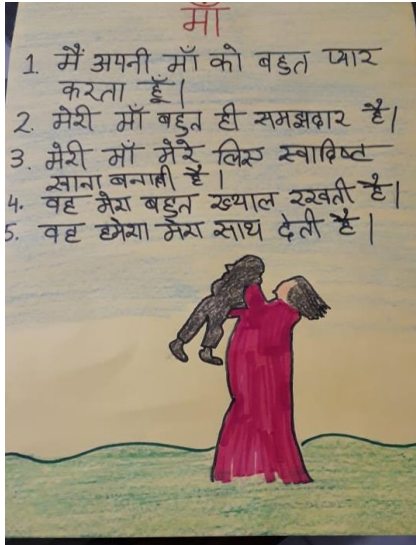 माँ
1. मैं अपनी माँ को बहुत प्यार
करता हूँ।
2. मेरी माँ बहुत ही समझदार है।
3. मेरी माँ मेरे लिए स्वादिष्ट
खाना बनाती है।
4. वह मेरा बहुत ख्याल रखती है।
5. वह हमेशा मेरा साथ देती है।